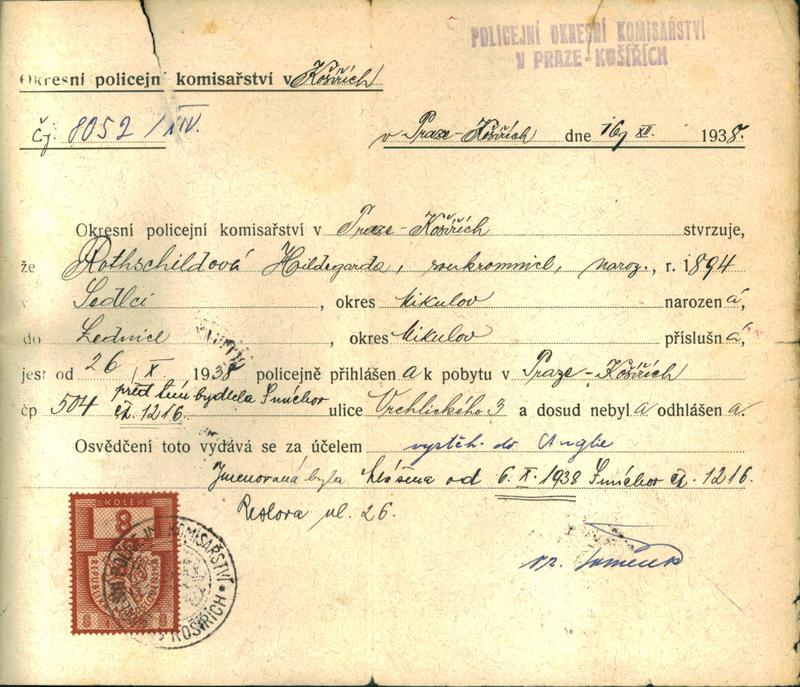 POLICEJNÍ OKRESNÍ KOMISAŘSTVÍ
V PRAZE-KOŠÍŘÍCH
Okresní policejní komisařství v Košířích
Čj. 8052/XIV.
v Praze-Košířích dne 16/XII. 1938.
Okresní policejní komisařství v Praze-Košířích stvrzuje,
že Rothschildová Hildegarda, soukromnice, naroz., r. 1894
v Sedlci, okres Mikulov narozená,
do Lednice, okres Mikulov příslušná,
jest od 26 X. 1938 policejně přihlášena k pobytu v Praze-Košířích
před tím bydlela Smíchov
čp 504 čp. 1216. ulice Vrchlického 3 a dosud nebyla odhlášena.
Osvědčení toto vydává se za účelem vystěh. do Anglie
Jmenovaná byla hlášena od 6. X. 1938 Smíchov čp. 1216.
ul. 26.
KOLEK
8
8 8
KOMISAŘSTVÍ
KOŠÍŘÍCH